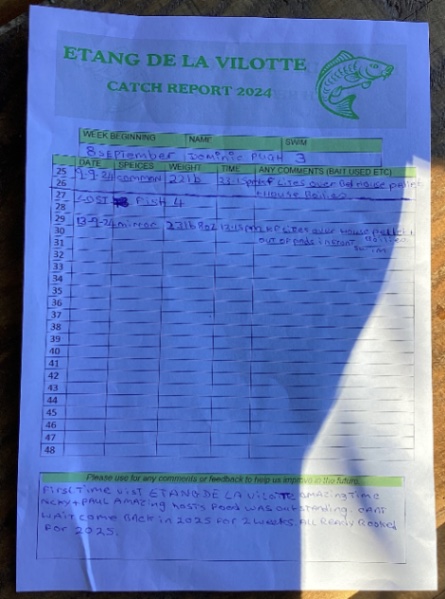 ETANG DE LA VILOTTE
CATCH REPORT 2024
WEEK BEGINNING NAME SWIM
8 SEPTEMBER DOMINIC PUGH 3
DATE SPEICES WEIGHT TIME ANY COMMENTS (BAIT USED ETC)
25 9-9-24 COMMON 22lb OVER
26 HOUSE
27 LOST FISH 4
28
29 13-9-24 mirror 23lb 8oz 12-15pm OVER HOUSE
30 OUT OF
31
32
33
34
35
36
37
38
39
40
41
42
43
44
45
46
47
48
Please use for any comments or feedback to help us improve in the future.
FIRST TIME VISIT ETANG DE LA VILOTTE AMAZING TIME
+ PAUL AMAZING HOSTS FOOD WAS OUTSTANDING. CANT
WAIT COME BACK IN 2025 FOR 2 WEEKS. ALL READY BOOKED
FOR 2025.